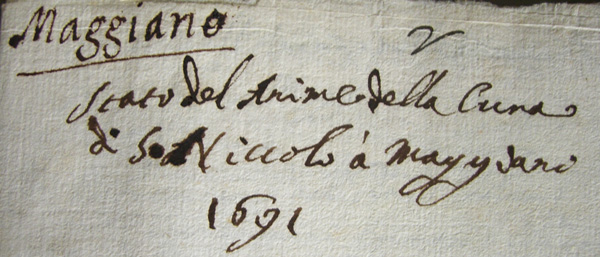 Maggiano
Stato del Anime della Cura
di S. Niccolò à Maggiano
1691